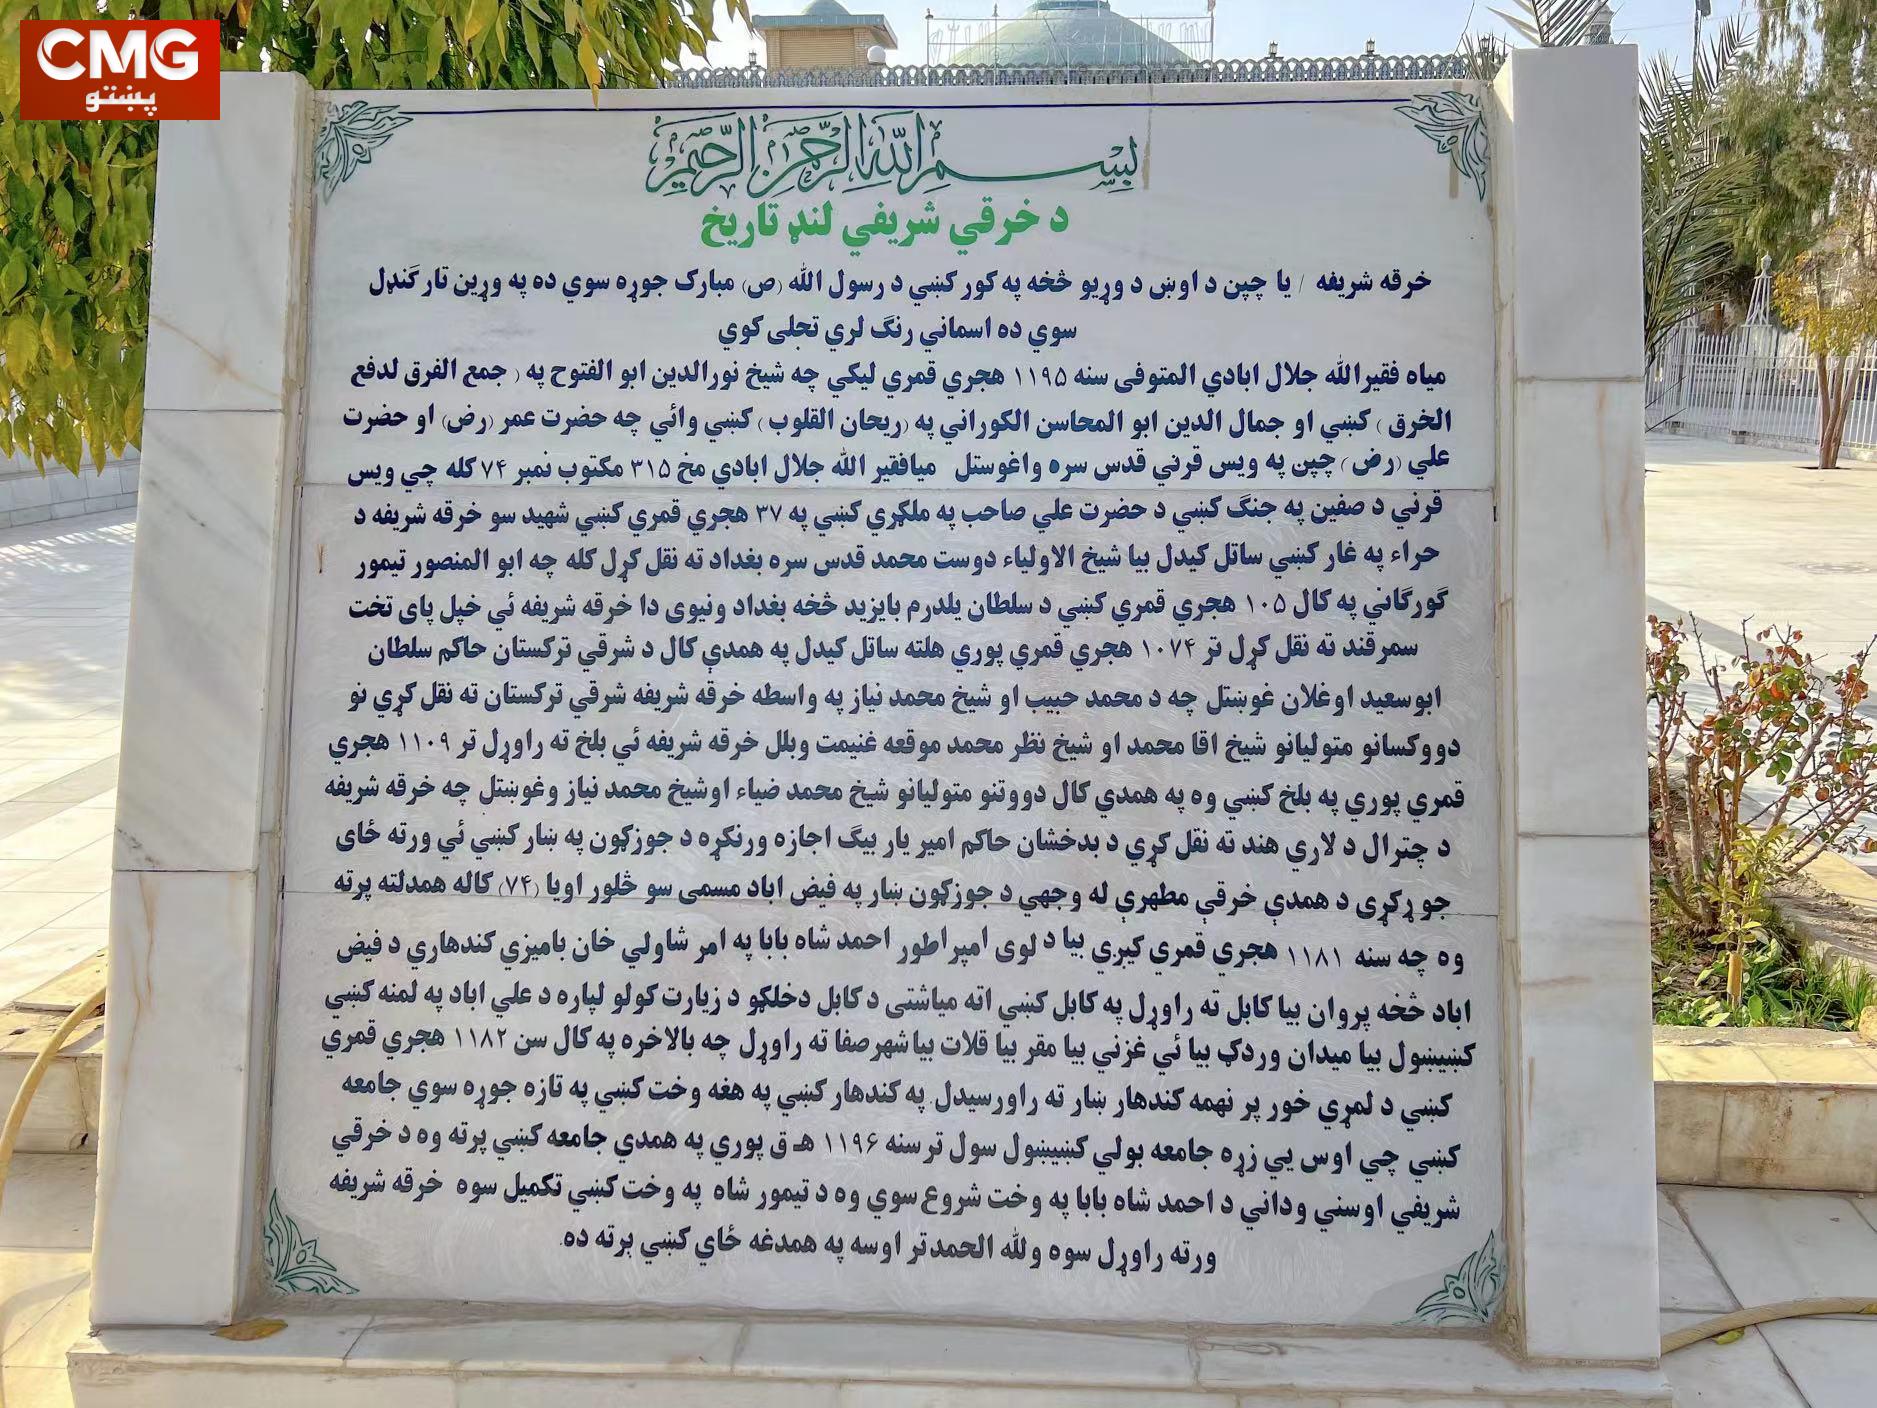 CMG
پښتو
بسم الله الرحمن الرحیم
د خرقې شریفې لنډ تاریخ
خرقه شریفه / یا چپن د اوښ د وړیو څخه په کور کښي د رسول الله (ص) مبارک جوړه سوي ده په وړین تار ګنډل
سوي ده اسماني رنگ لري تجلی کوي
میاه فقیرالله جلال ابادي المتوفی سنه ۱۱۹۵ هجري قمري لیکي چه شیخ نورالدین ابو الفتوح په ( جمع الفرق لدفع
الخرق ) کښي او جمال الدین ابو المحاسن الکوراني په (ریحان القلوب) کښي وائي چه حضرت عمر (رض) او حضرت
علي (رض) چپن په ویس قرني قدس سره واغوستل میافقیر الله جلال ابادي مخ ۳۱۵ مکتوب نمبر ۷۴ کله چي ویس
قرني د صفین په جنگ کښي د حضرت علي صاحب په ملګري کښي په ۳۷ هجري قمري کښي شهید سو خرقه شریفه د
حراء په غار کښي ساتل کیدل بیا شیخ الاولیاء دوست محمد قدس سره بغداد ته نقل کړل کله چه ابو المنصور تیمور
گورگاني په کال ۱۰۵ هجري قمري کښي د سلطان یلدرم بایزید څخه بغداد ونیوی دا خرقه شریفه ئي خپل پای تخت
سمرقند ته نقل کړل تر ۱۰۷۴ هجري قمري پوري هلته ساتل کیدل په همدې کال د شرقي ترکستان حاکم سلطان
ابوسعید اوغلان غوښتل چه د محمد حبیب او شیخ محمد نیاز په واسطه خرقه شریفه شرقي ترکستان ته نقل کړي نو
دووکسانو متولیانو شیخ اقا محمد او شیخ نظر محمد موقعه غنیمت وبلل خرقه شریفه ئي بلخ ته راوړل تر ۱۱۰۹ هجري
قمري پوري په بلخ کښي وه په همدي کال دووتنو متولیانو شیخ محمد ضیاء اوشیخ محمد نیاز وغوښتل چه خرقه شریفه
د چترال د لاري هند ته نقل کړي د بدخشان حاکم امیر یار بیگ اجازه ورنکړه د جوزګون په ښار کښي ئي ورته ځای
جوړکړی د همدې خرقې مطهرې له وجهي د جوزګون ښار په فیض اباد مسمی سو څلور اویا (۷۴) کاله همدلته پرته
وه چه سنه ۱۱۸۱ هجري قمري کیږي بیا د لوی امپراطور احمد شاه بابا په امر شاولي خان بامیزي کندهاري د فیض
اباد څخه پروان بیا کابل ته راوړل په کابل کښي اته میاشتی د کابل دخلکو د زیارت کولو لپاره د علي اباد په لمنه کښي
کښیښول بیا میدان وردګ بیا ئي غزني بیا مقر بیا قلات بیا شهرصفا ته راوړل چه بالاخره په کال سن ۱۱۸۲ هجري قمري
کښي د لمړي خور پر نهمه کندهار ښار ته راورسیدل. په کندهار کښي په هغه وخت کښي په تازه جوړه سوي جامعه
کښي چي اوس یي زړه جامعه بولي کښیښول سول تر سنه ۱۱۹۶ هـ ق پوري په همدي جامعه کښي پرته وه د خرقي
شریفي اوسني وداني د احمد شاه بابا په وخت شروع سوي وه د تیمور شاه په وخت کښي تکمیل سوه خرقه شریفه
ورته راوړل سوه ولله الحمدتر اوسه په همدغه ځاي کښي پرته ده.